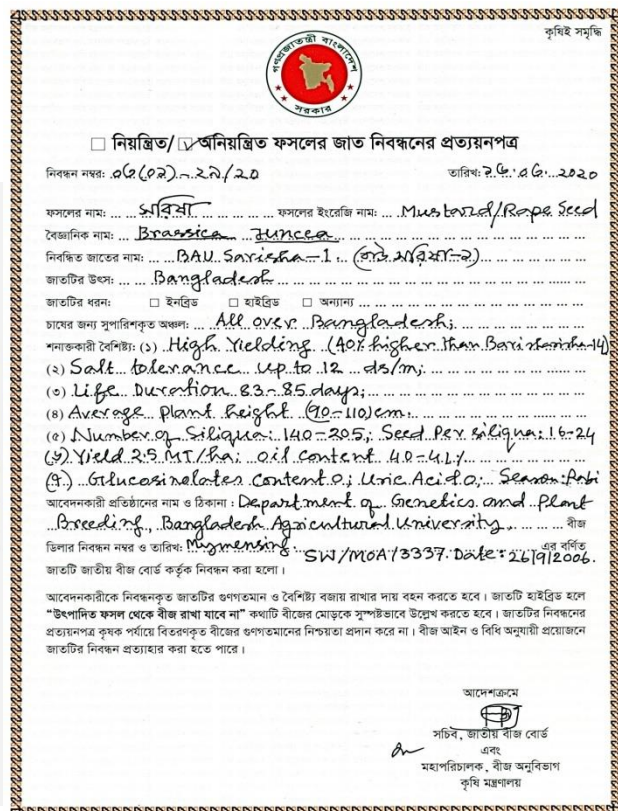 কৃষিই সমৃদ্ধি
গণপ্রজাতন্ত্রী বাংলাদেশ
সরকার
নিয়ন্ত্রিত/ অনিয়ন্ত্রিত ফসলের জাত নিবন্ধনের প্রত্যয়নপত্র
নিবন্ধন নম্বর: ০৫(০২)-২৯/20 তারিখ: ২৫.০৫.2020
ফসলের নাম: সরিষা ফসলের ইংরেজি নাম: Mustard/Rape Seed
বৈজ্ঞানিক নাম: Brassica Juncea
নিবন্ধিত জাতের নাম: BAU Sarisha-1.
জাতটির উৎস: Bangladesh
জাতটির ধরন: ইনব্রিড হাইব্রিড অন্যান্য
চাষের জন্য সুপারিশকৃত অঞ্চল: All over Bangladesh;
শনাক্তকারী বৈশিষ্ট্য: (১) High Yielding (40% higher than Bari Sarisha-14)
(২) Salt tolerance up to 12 ds/m;
(৩) Life Duration 83-85 days;
(৪) Average plant height (90-110)cm.
(৫) Number of Siliqua: 140-205; Seed Per siliqua: 16-24
(৬) Yield 2.5 MT/ha; Oil content 40-41%
(৭) Glucosinolates content 0; Uric Acid 0; Season: Rabi
আবেদনকারী প্রতিষ্ঠানের নাম ও ঠিকানা : Department of Genetics and Plant
Breeding, Bangladesh Agricultural University, বীজ
ডিলার নিবন্ধন নম্বর ও তারিখ: Mymensing SW/MOA/3337. Date: 26/9/2006. এর বর্ণিত
জাতটি জাতীয় বীজ বোর্ড কর্তৃক নিবন্ধন করা হলো।
আবেদনকারীকে নিবন্ধনকৃত জাতটির গুণগতমান ও বৈশিষ্ট্য বজায় রাখার দায় বহন করতে হবে। জাতটি হাইব্রিড হলে
“উৎপাদিত ফসল থেকে বীজ রাখা যাবে না” কথাটি বীজের মোড়কে সুস্পষ্টভাবে উল্লেখ করতে হবে। জাতটির নিবন্ধনের
প্রত্যয়নপত্র কৃষক পর্যায়ে বিতরণকৃত বীজের গুণগতমানের নিশ্চয়তা প্রদান করে না। বীজ আইন ও বিধি অনুযায়ী প্রয়োজনে
জাতটির নিবন্ধন প্রত্যাহার করা হতে পারে।
আদেশক্রমে
সচিব, জাতীয় বীজ বোর্ড
এবং
মহাপরিচালক, বীজ অনুবিভাগ
কৃষি মন্ত্রণালয়